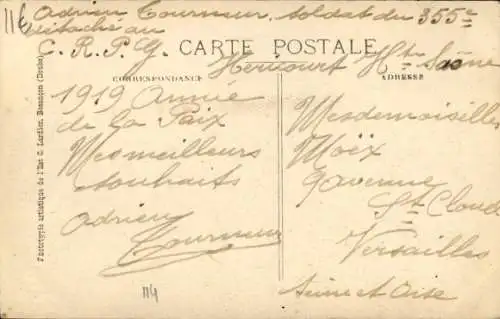 11E Adrien Tourneur, soldat du 355e
détaché au
C. R. P. G.
CARTE POSTALE
Héricourt Hte Saône
CORRESPONDANCE
ADRESSE
1919 Année
de la Paix
Mes meilleurs
souhaits
Adrien
Tourneur
114
Mesdemoiselles
Moëx
9 avenue
St Cloud
Versailles
Seine et Oise
Phototypie artistique de l'Est C. Lardier, Besançon (Doubs)